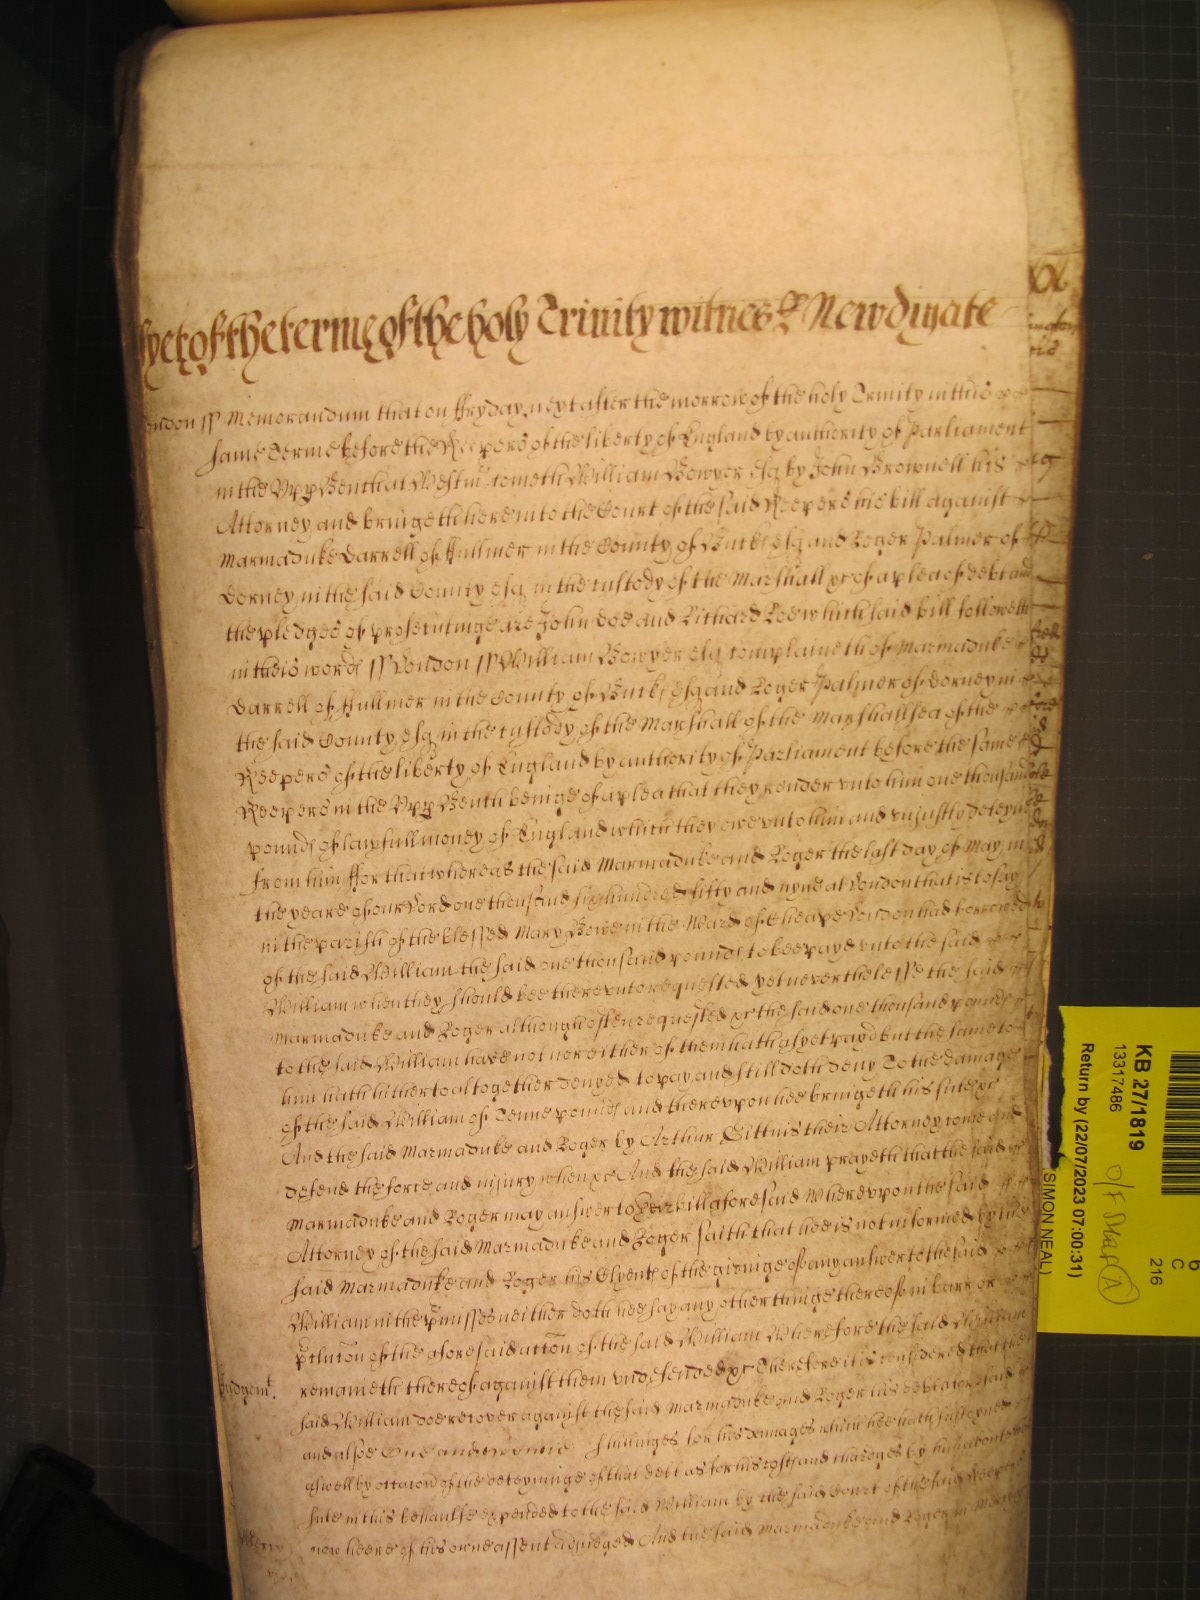 Yet of the terme of the holy Trinity witnes &c Newdigate
London ss Memorandum that on ffryday next after the morrow of the holy Trinity in this
same Terme before the Keepers of the liberty of England by authority of Parliament
in the Vpp Bench at Westmr cometh William Bowyer Esq by John Brownell his
Attorney and bringeth here into the Court of the said Keepers his bill against
Marmaduke Darrell of ffullmer in the County of Bucks Esq and Roger Palmer of
Dorney in the said County Esq in the custody of the Marshall &c of a plea of debt and
the pledges of prosecutinge are John Doe and Richard Roe which said bill followeth
in theis words ss London ss William Bowyer Esq complaineth of Marmaduke
Darrell of ffullmer in the County of Bucks Esq and Roger Palmer of Dorney in
the said County Esq in the custody of the Marshall of the Marshallsea of the
Keepers of the liberty of England by authority of Parliament before the same
Keepers in the Vpp Bench beinge of a plea that they render vnto him one thousand
pounds of lawfull money of England which they owe vnto him and vniustly deteyne
from him ffor that whereas the said Marmaduke and Roger the last day of May in
the yeare of our Lord one thousand six hundred fifty and nyne at London that is to say
in the parish of the blessed Mary Bowe in the Ward of Cheape London had borrowed
of the said William the said one thousand pounds to bee payd vnto the said
William when they should bee therevnto requested yet neverthelesse the said
Marmaduke and Roger although often requested &c the said one thousand pounds
to the said William have not nor either of them hath as yet payd but the same to
him hath hitherto altogether denyed to pay and still doth deny To the damage
of the said William of Tenne pounds and therevpon hee bringeth his sute &c
And the said Marmaduke and Roger by Arthur Gittins their Attorney come and
defend the force and iniury when &c And the said William prayeth that the said
Marmaduke and Roger may answer to his bill aforesaid Wherevpon the said
Attorney of the said Marmaduke and Roger saith that hee is not informed by the
said Marmaduke and Roger his Clyents of the giveinge of any answer to the said
William in the pmisses neither doth hee say any other thinge thereof in barr or
pclusion of the aforesaid accon of the said William Wherefore the said William
remaineth thereof against them vndefended &c Therefore it is considered that the
said William doe recover against the said Marmaduke and Roger his debt aforesaid
and alsoe One and twentie shillinges for his damages which hee hath susteyned
aswell by occacon of the deteyninge of that debt as for his costs and charges by him about his
sute in this behaulfe expended to the said William by the said Court of the said Keepers
now heere of his owne assent adiudged And the said Marmaduke and Roger in Mercy
Judgemt.
Mercy
KB 27/1819
13317486
Return by (22/07/2023 07:00:31)
(SIMON NEAL)
O/F Shelf A
6
C
216